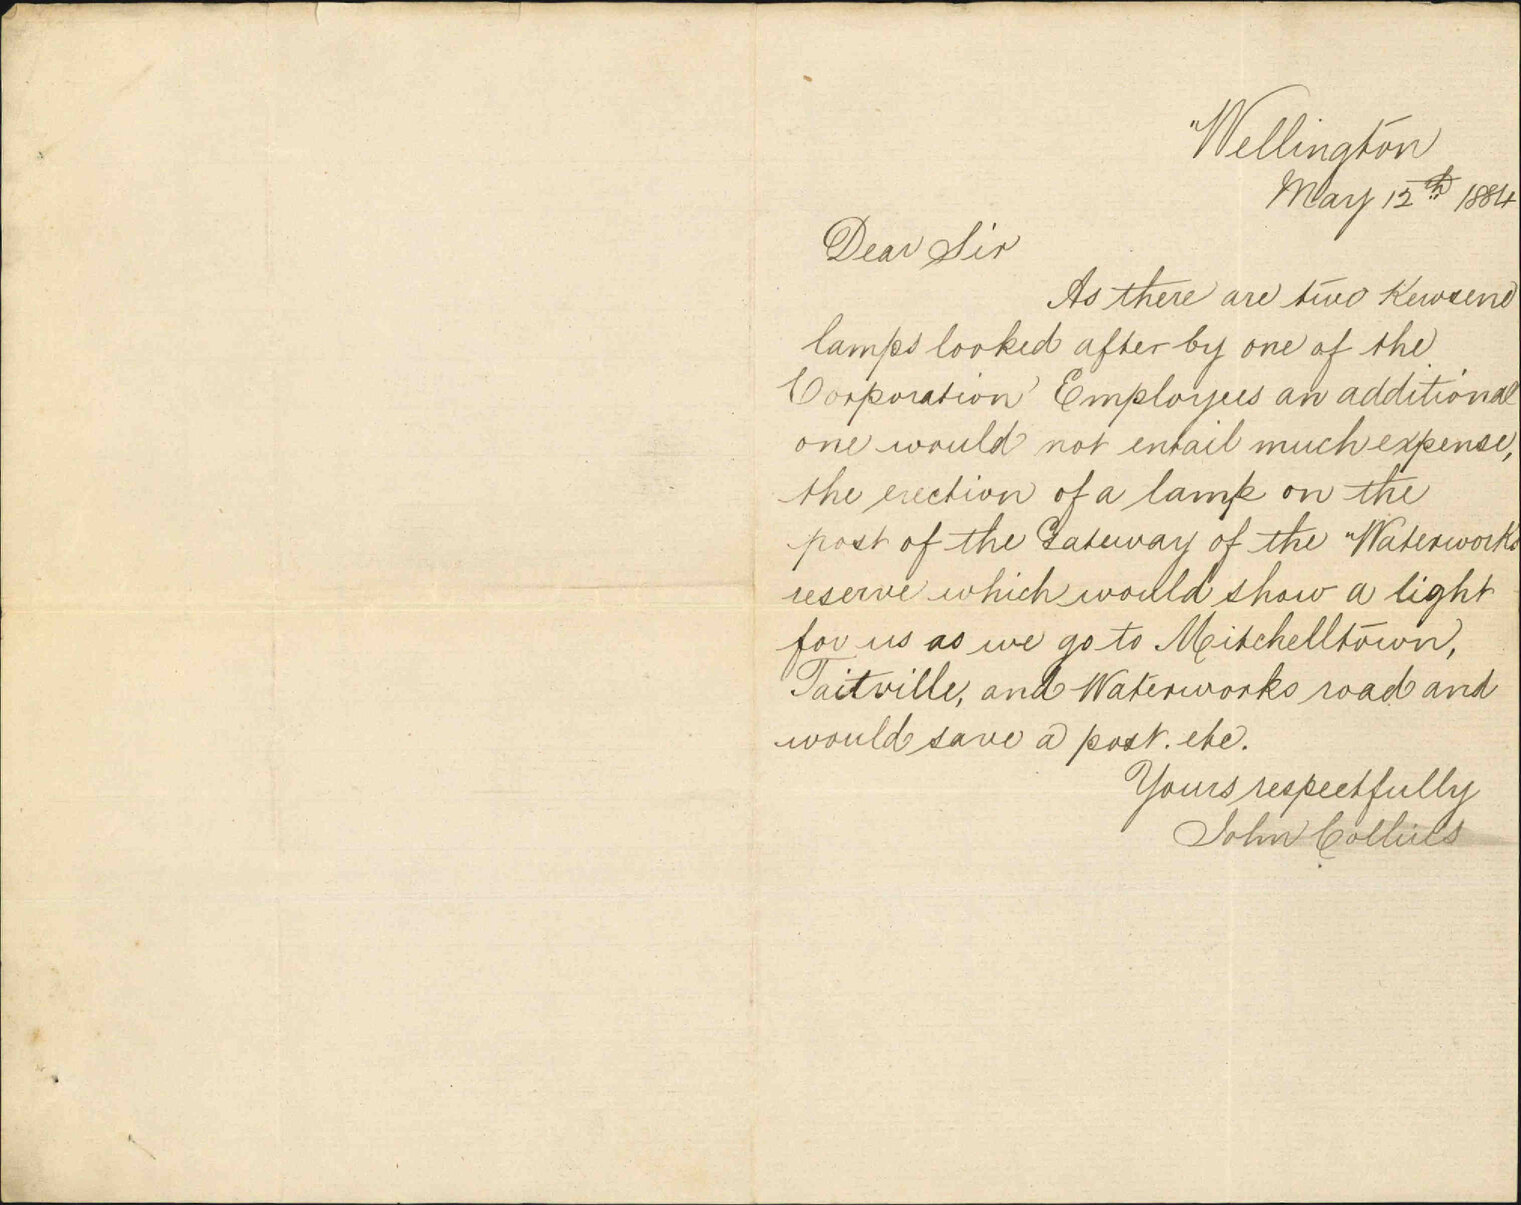 Wellington
May 12th 1884
Dear Sir
As there are two Kewsene
lamps looked after by one of the
Corporation Employees an additional
one would not entail much expense,
the erection of a lamp on the
post of the Gateway of the Waterworks
reserve which would show a light
for us as we go to Mitchelltown,
Taitville, and Waterworks road and
would save a post. etc.
Yours respectfully
John Collins